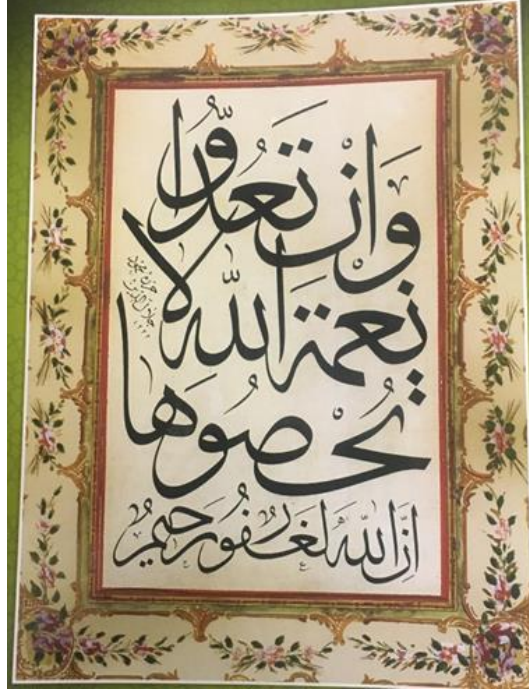 وَاِنْ تَعُدُّوا
نِعْمَةَ اللّٰهِ لَا
تُحْصُوهَا
اِنَّ اللّٰهَ لَغَفُورٌ رَحِيمٌ